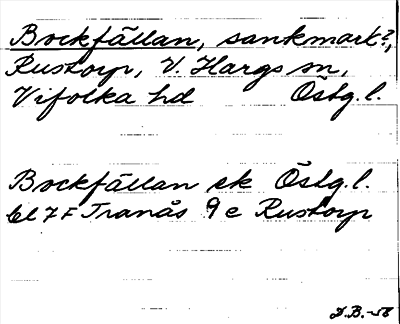 Bockfällan, sankmark?,
Rustorp, V. Hargs sn,
Vifolka hd Östg. l.
Bockfällan ek Östg. l.
bl 7 F Tranås 9 e Rustorp
D.B.-58